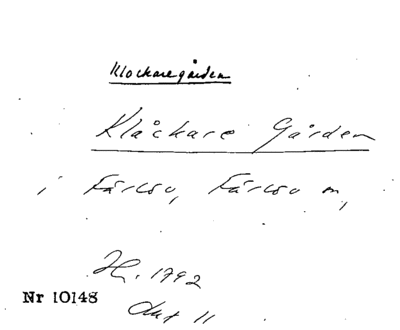 Klockaregården
Klåckare Gården
i Färlöv, Färlöv sn,
H. 1792
Akt 11
Nr 10148